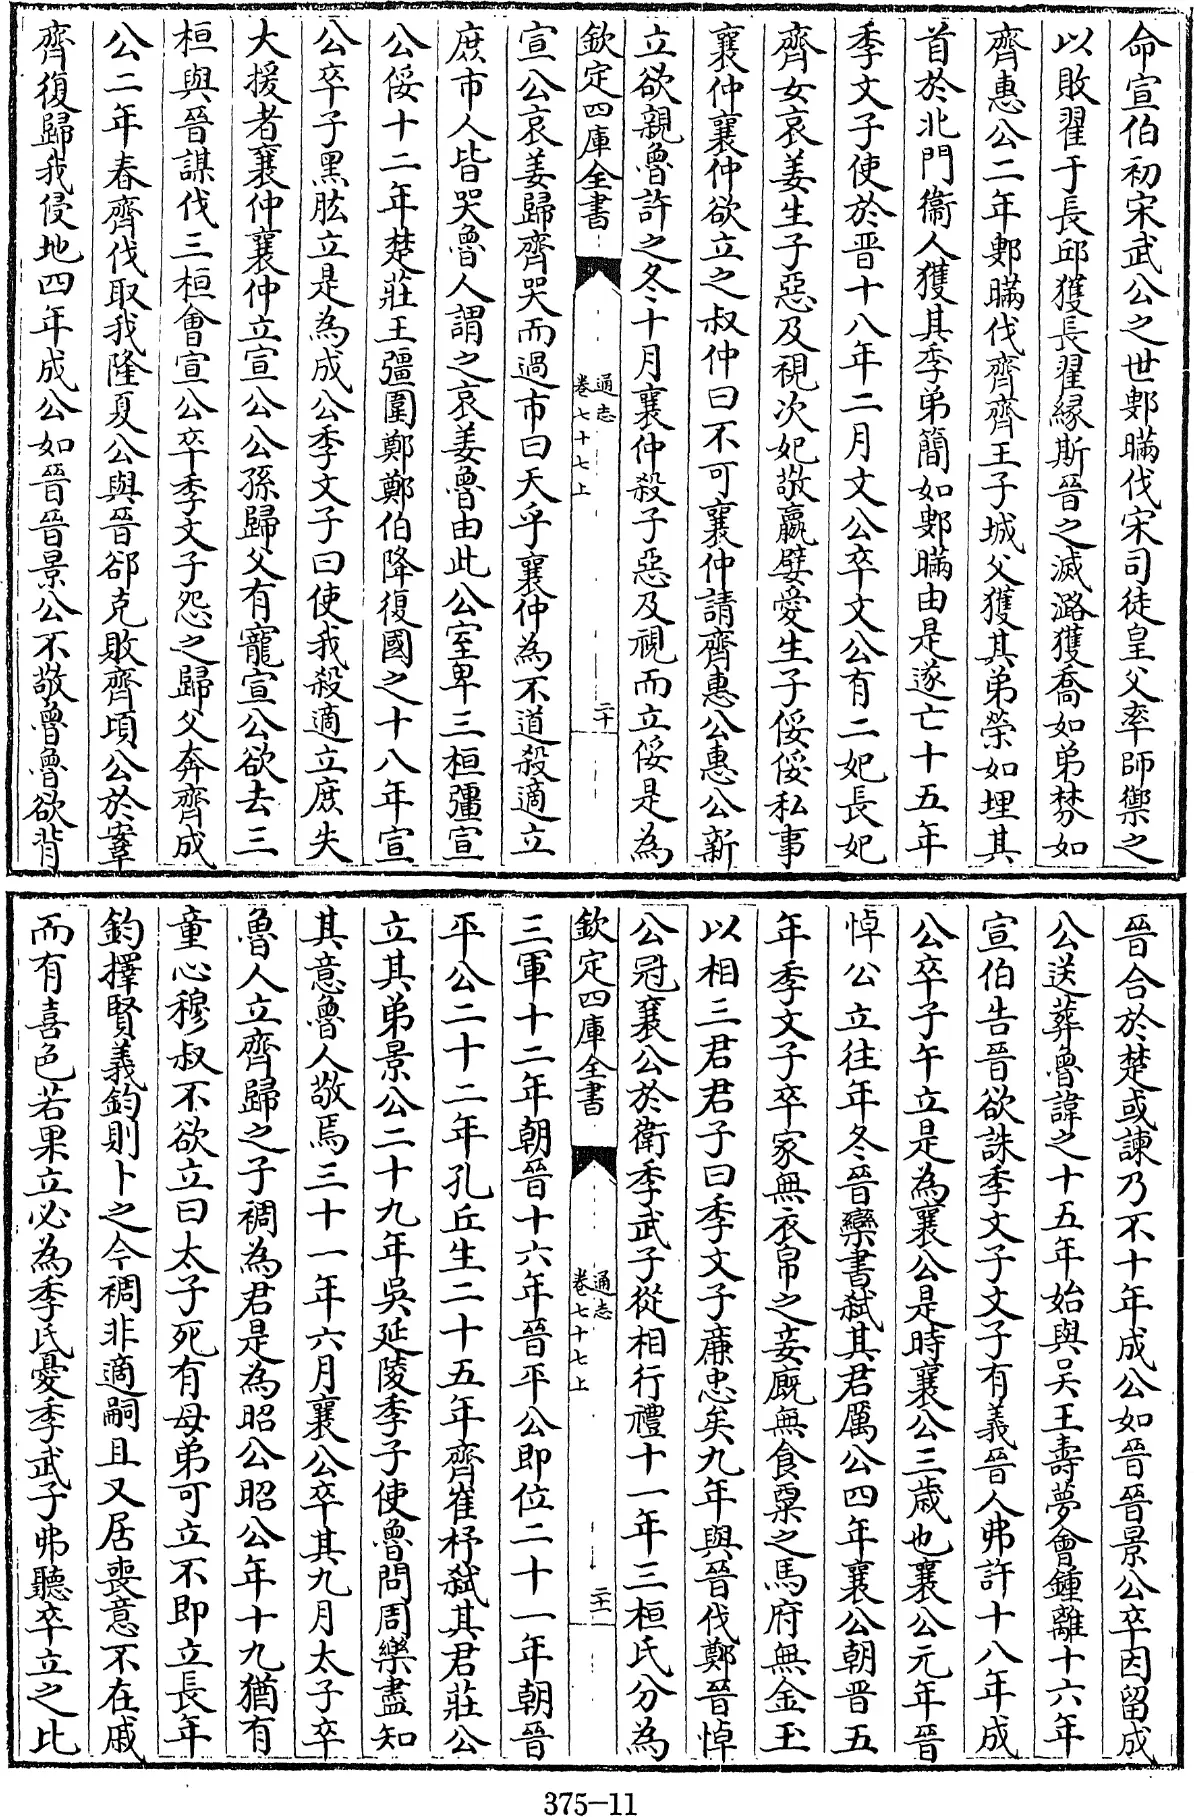 命宣伯初宋武公之世鄋瞞伐宋司徒皇父率師禦之
以敗翟于長邱獲長翟緣斯晉之滅潞獲喬如弟棼如
齊惠公二年鄋瞞伐齊齊王子城父獲其弟榮如埋其
首於北門衞人獲其季弟簡如鄋瞞由是遂亡十五年
季文子使於晋十八年二月文公卒文公有二妃長妃
齊女哀姜生子惡及視次妃敬嬴嬖愛生子俀俀私事
襄仲襄仲欲立之叔仲曰不可襄仲請齊惠公惠公新
立欲親魯許之冬十月襄仲殺子惡及視而立俀是為
欽定四庫全書
通志
卷七十七上
二十
宣公哀姜歸齊哭而過市曰天乎襄仲為不道殺適立
庶市人皆哭魯人謂之哀姜魯由此公室卑三桓彊宣
公俀十二年楚莊王彊圍鄭鄭伯降復國之十八年宣
公卒子黑肱立是為成公季文子曰使我殺適立庶失
大援者襄仲襄仲立宣公公孫歸父有寵宣公欲去三
桓與晉謀伐三桓會宣公卒季文子怨之歸父奔齊成
公二年春齊伐取我隆夏公與晉郤克敗齊頃公於鞌
齊復歸我侵地四年成公如晉晉景公不敬魯魯欲背
晉合於楚或諫乃不十年成公如晉晉景公卒因留成
公送葬魯諱之十五年始與吳王壽夢會鍾離十六年
宣伯告晉欲誅季文子文子有義晉人弗許十八年成
公卒子午立是為襄公是時襄公三歲也襄公元年晉
悼公立往年冬晉欒書弑其君厲公四年襄公朝晋五
年季文子卒家無衣帛之妾廐無食粟之馬府無金玉
以相三君君子曰季文子廉忠矣九年與晉伐鄭晉悼
公冠襄公於衛季武子從相行禮十一年三桓氏分為
欽定四庫全書
通志
卷七十七上
二十一
三軍十二年朝晉十六年晉平公即位二十一年朝晉
平公二十二年孔丘生二十五年齊崔杼弑其君莊公
立其弟景公二十九年吳延陵季子使魯問周樂盡知
其意魯人敬焉三十一年六月襄公卒其九月太子卒
魯人立齊歸之子裯為君是為昭公昭公年十九猶有
童心穆叔不欲立曰太子死有母弟可立不即立長年
鈞擇賢義鈞則卜之今裯非適嗣且又居喪意不在戚
而有喜色若果立必為季氏憂季武子弗聽卒立之比
375-11